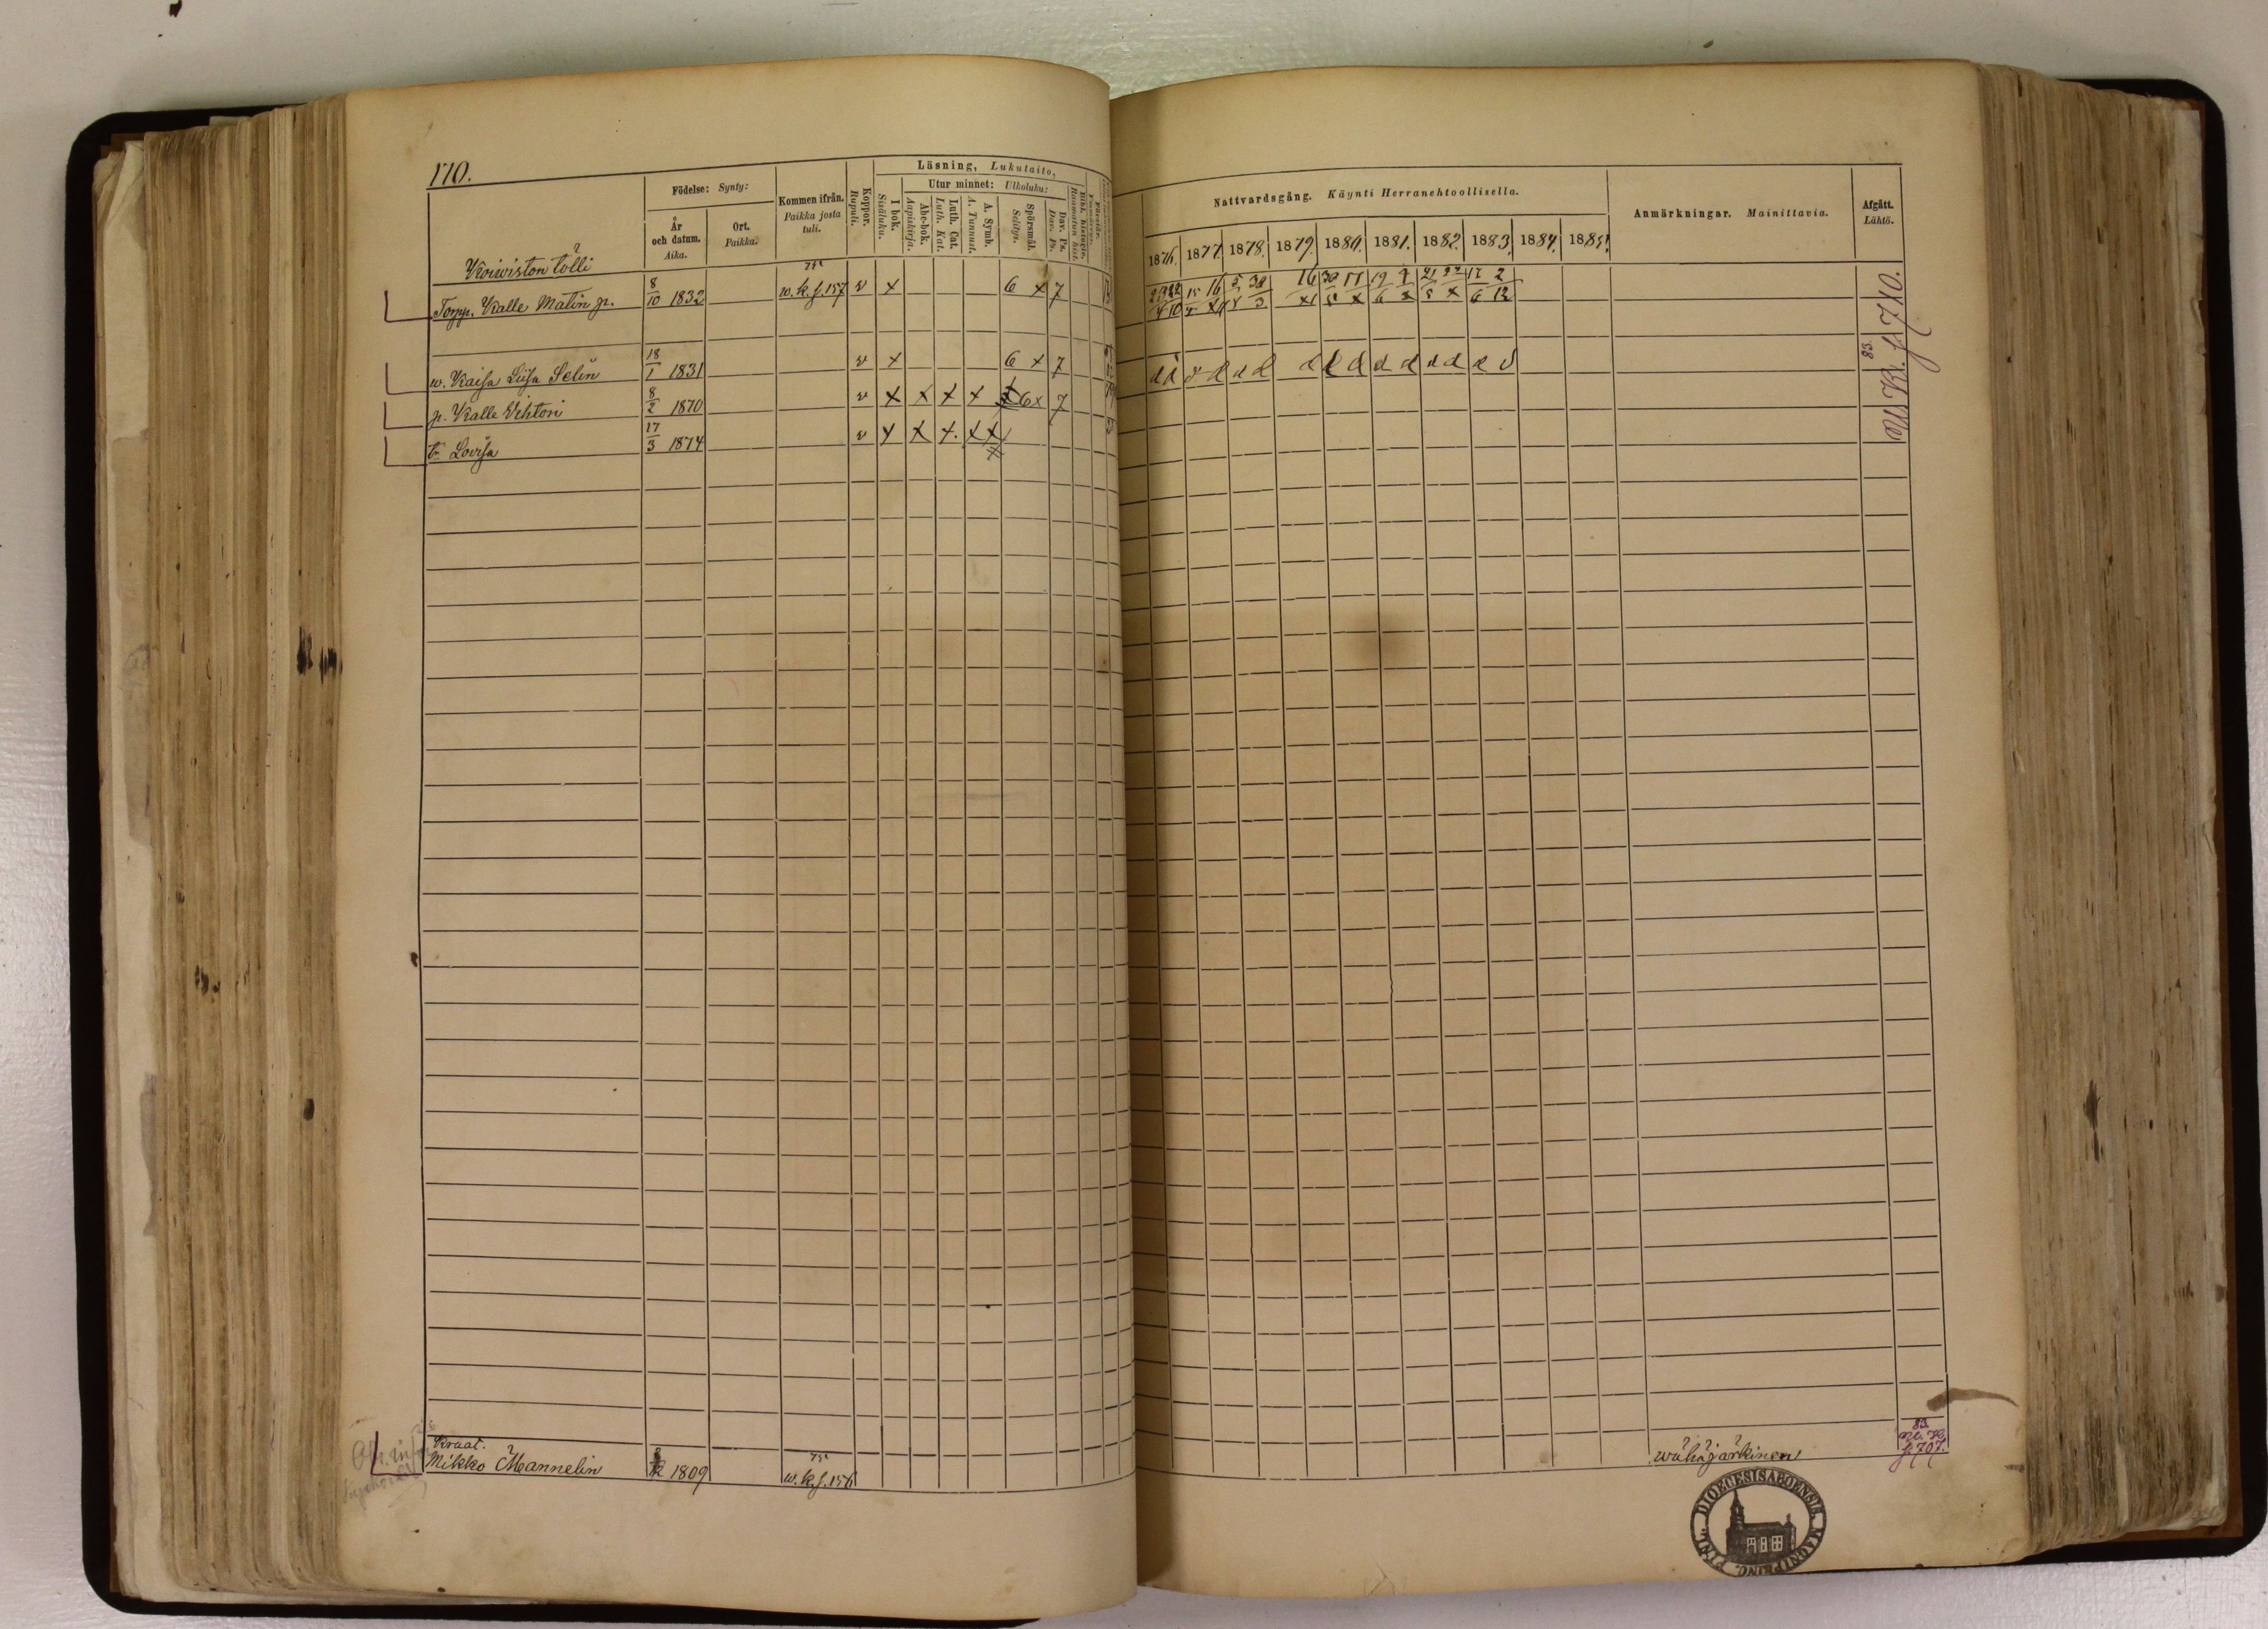 170.
Födelse: Synty:
År och datum. Aika.
Ort. Paikka.
Kommen ifrån. Paikka josta tuli.
Koppor. Rupuli.
Läsning, Lukutaito,
I bok. Sisäluku.
Utur minnet: Ulkoluku:
Abc-bok. Aapiskirja.
Luth. Cat. Luth. Kat.
A. Symb. A. Tunnust.
Spörsmål. Selitys.
Dav. Ps. Dav. Ps.
Bibl. historie. Raamatun hist.
Nattvardsgång. Käynti Herranehtoollisella.
1876. 1877. 1878. 1879. 1880. 1881. 1882. 1883. 1884. 1885.
Anmärkningar. Mainittavia.
Afgått. Lähtö.
Koiwiston tölli
Torpp. Kalle Matin p. 8/10 1832 75 w.k.f.157 v x 6 x 7
w. Kaisa Liisa Selin 18/1 1831 v x 6 x 7
p. Kalle Vihtori 8/2 1870 v x x x x 6 x 7
tr Lovisa 17/3 1874 v x x x x x
83. U.K. f. 710.
Kruat.
Mikko Mannelin 1809 75 w.k.f.156
wähäjärkinen
83. U.K. f. 707.
DIOECESIS ABOENSIS. MAGNI PRINC. FINL.